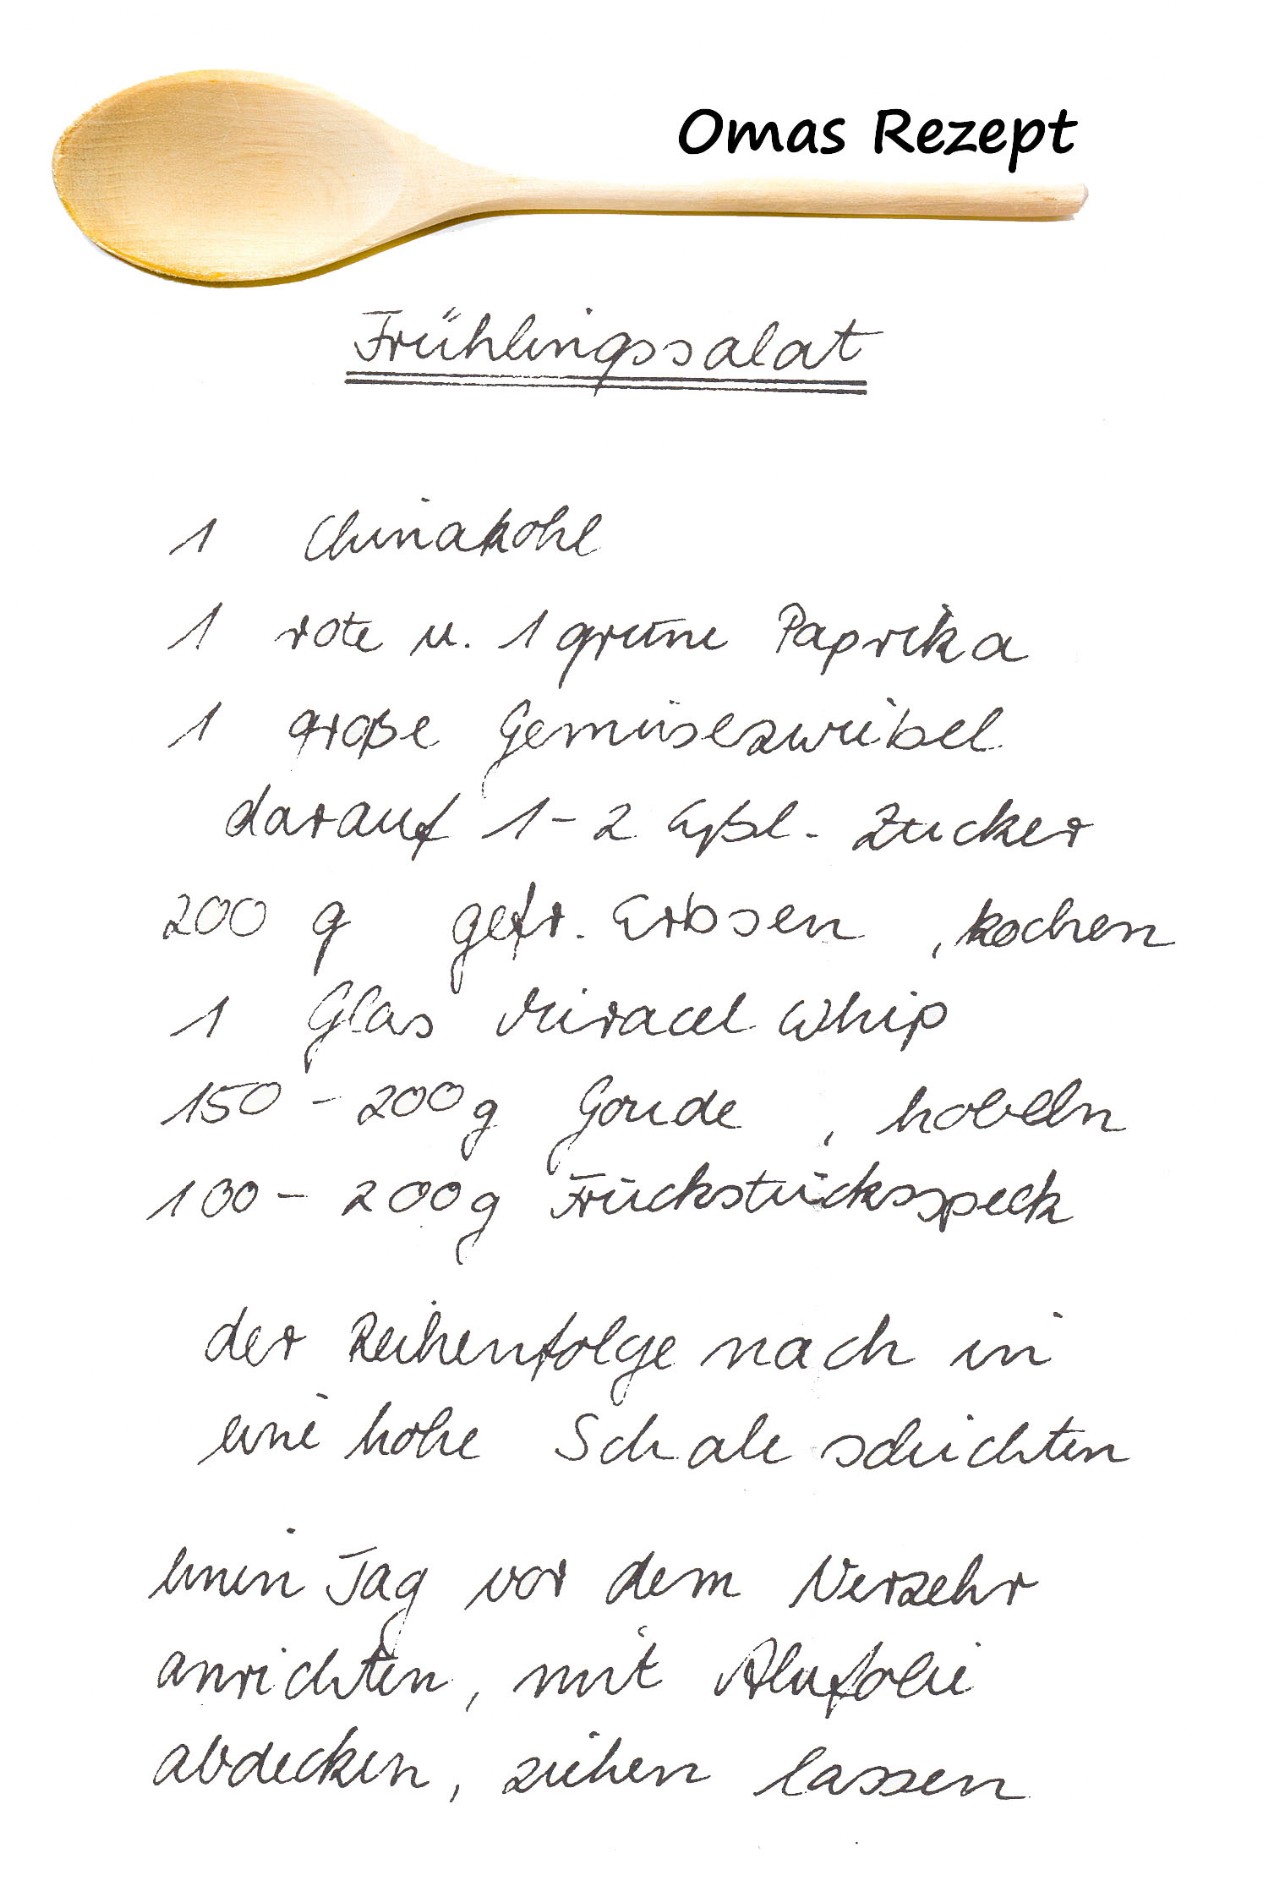 Omas Rezept
Frühlingssalat
1 Chinakohl
1 rote u. 1 grüne Paprika
1 große Gemüsezwiebel
darauf 1-2 Eßl. Zucker
200 g gefr. Erbsen, kochen
1 Glas Miracel Whip
150 - 200g Gouda, hobeln
100 - 200g Frückstücksspeck
der Reihenfolge nach in
eine hohe Schale schichten
einen Tag vor dem Verzehr
anrichten, mit Alufolie
abdecken, ziehen lassen